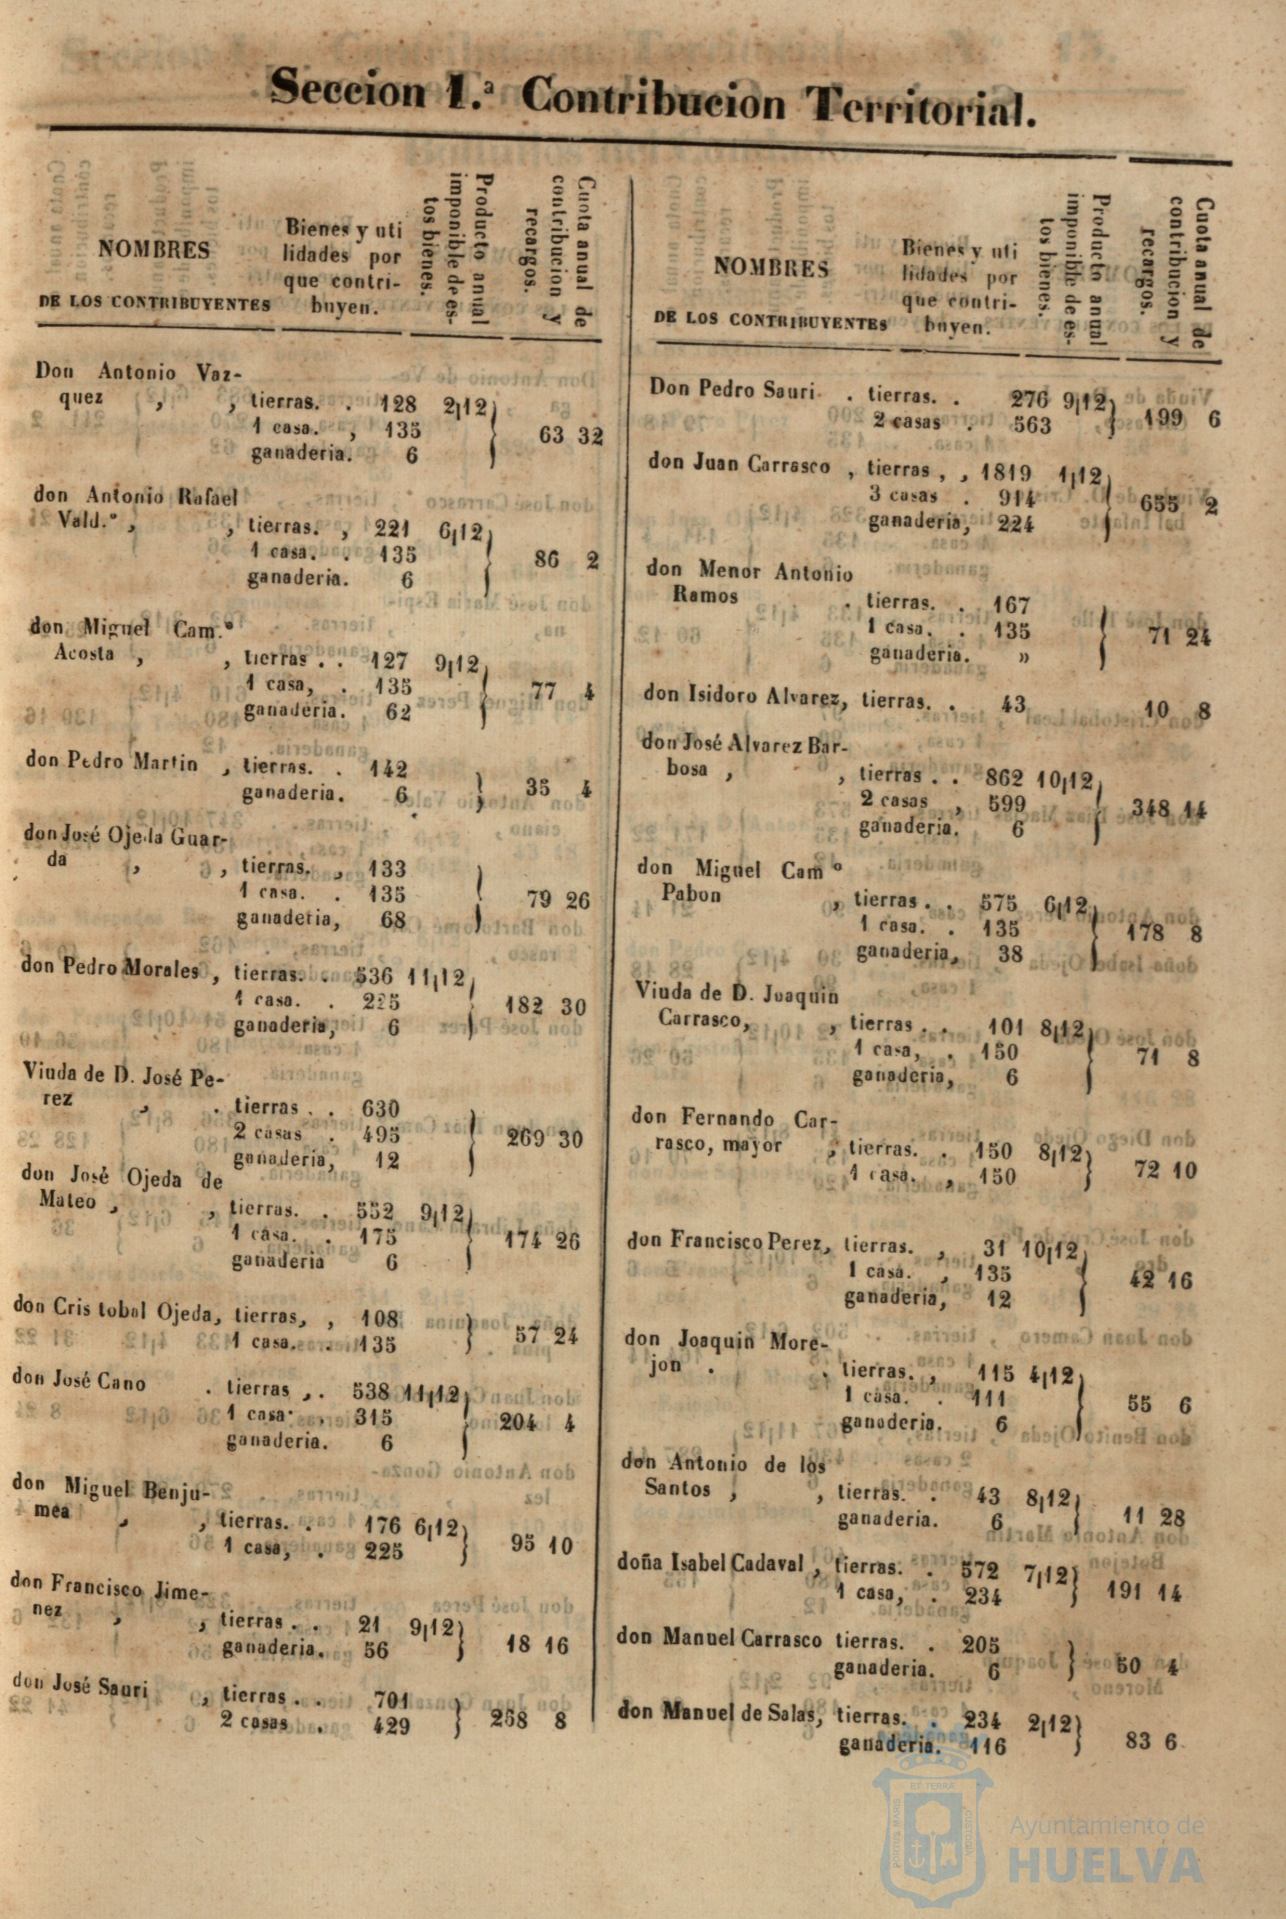 Seccion 1.ª Contribucion Territorial.
NOMBRES
DE LOS CONTRIBUYENTES
Bienes y uti
lidades por
que contri-
buyen.
Producto anual
imponible de es-
tos bienes.
Cuota anual de
contribucion y
recargos.
Don Antonio Vaz-
quez , , tierras. . 128 2|12
1 casa. , 135 63 32
ganaderia. 6
don Antonio Rafael
Vald.º , , tierras. , 221 6|12
1 casa. . 135 86 2
ganaderia. 6
don Miguel Cam.º
Acosta , , tierras . . 127 9|12
1 casa, . 135 77 4
ganaderia. 62
don Pedro Martin , tierras. . 142
ganaderia. 6 35 4
don José Ojeda Guar-
da , , tierras. , 133
1 casa. . 135 79 26
ganaderia, 68
don Pedro Morales , tierras. . 536 11|12
1 casa. . 225 182 30
ganaderia, 6
Viuda de D. José Pe-
rez , . tierras . . 630
2 casas . 495 269 30
ganaderia, 12
don José Ojeda de
Mateo , , tierras. . 552 9|12
1 casa. . 175 174 26
ganaderia 6
don Cristobal Ojeda, tierras, , 108
1 casa. . 135 57 24
don José Cano . tierras , . 538 11|12
1 casa . , 315 204 4
ganaderia. 6
don Miguel Benju-
mea , , tierras. . 176 6|12
1 casa, . 225 95 10
don Francisco Jime-
nez , , tierras . . 21 9|12
ganaderia. 56 18 16
don José Sauri , tierras . . 701
2 casas . 429 258 8
NOMBRES
DE LOS CONTRIBUYENTES
Bienes y uti
lidades por
que contri-
buyen.
Producto anual
imponible de es-
tos bienes.
Cuota anual de
contribucion y
recargos.
Don Pedro Sauri . tierras. . 276 9|12
2 casas . 563 199 6
don Juan Carrasco , tierras , , 1819 1|12
3 casas . 914 655 2
ganaderia, 224
don Menor Antonio
Ramos . tierras. . 167
1 casa. . 135 71 24
ganaderia. »
don Isidoro Alvarez, tierras. . 43 10 8
don José Alvarez Bar-
bosa , , tierras . . 862 10|12
2 casas , 599 348 14
ganaderia. 6
don Miguel Camº
Pabon , tierras . . 575 6|12
1 casa. . 135 178 8
ganaderia, 38
Viuda de D. Joaquin
Carrasco, , tierras . . 101 8|12
1 casa, . 150 71 8
ganaderia, 6
don Fernando Car-
rasco, mayor , tierras. . 150 8|12
1 casa. , 150 72 10
don Francisco Perez, tierras. , 31 10|12
1 casa. , 135 42 16
ganaderia, 12
don Joaquin More-
jon . . tierras. , 115 4|12
1 casa. . 111 55 6
ganaderia. 6
don Antonio de los
Santos , , tierras. . 43 8|12
ganaderia. 6 11 28
doña Isabel Cadaval , tierras. . 572 7|12
1 casa, . 234 191 14
don Manuel Carrasco tierras. . 205
ganaderia. 6 50 4
don Manuel de Salas, tierras. . 234 2|12
ganaderia. 116 83 6
PORTUS MARIS ET TERRÆ CUSTODIA
Ayuntamiento de
HUELVA